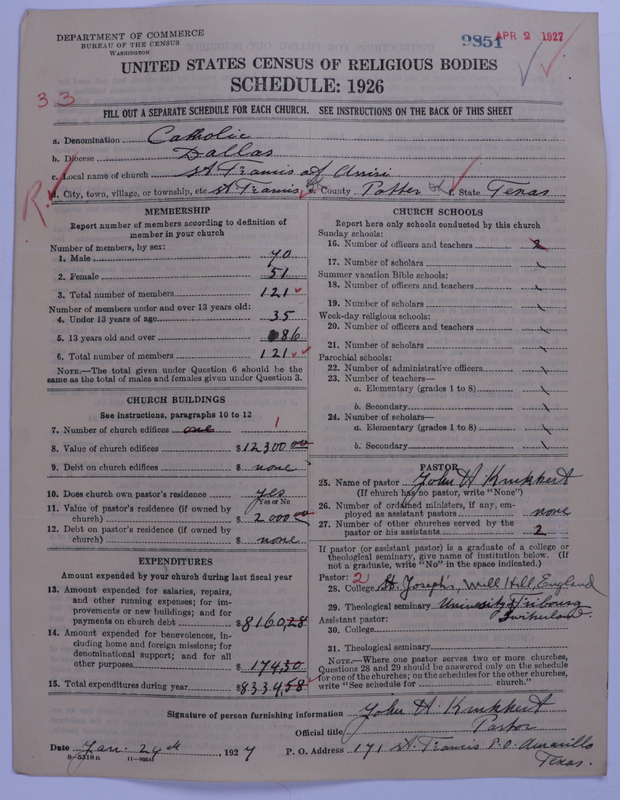 DEPARTMENT OF COMMERCE
BUREAU OF THE CENSUS
WASHINGTON
9851 APR 2 1927
UNITED STATES CENSUS OF RELIGIOUS BODIES
SCHEDULE: 1926
33
FILL OUT A SEPARATE SCHEDULE FOR EACH CHURCH. SEE INSTRUCTIONS ON THE BACK OF THIS SHEET
a. Denomination Catholic
b. Diocese Dallas
c. Local name of church St Francis of Assisi
R.
d. City, town, village, or township, etc. St Francis e. County Potter f. State Texas
MEMBERSHIP
Report number of members according to definition of
member in your church
Number of members, by sex:
1. Male 70
2. Female 51
3. Total number of members 121
Number of members under and over 13 years old:
4. Under 13 years of age 35
5. 13 years old and over 86
6. Total number of members 121
NOTE.—The total given under Question 6 should be
the same as the total of males and females given under Question 3.
CHURCH BUILDINGS
See instructions, paragraphs 10 to 12
7. Number of church edifices one 1
8. Value of church edifices $12300.00
9. Debt on church edifices $ none
10. Does church own pastor's residence yes
Yes or No
11. Value of pastor's residence (if owned by
church) $2000.00
12. Debt on pastor's residence (if owned by
church) $ none
EXPENDITURES
Amount expended by your church during last fiscal year
13. Amount expended for salaries, repairs,
and other running expenses; for im-
provements or new buildings; and for
payments on church debt $8160,28
14. Amount expended for benevolences, in-
cluding home and foreign missions; for
denominational support; and for all
other purposes $174,30
15. Total expenditures during year $8334,58
CHURCH SCHOOLS
Report here only schools conducted by this church
Sunday schools:
16. Number of officers and teachers 2
17. Number of scholars
Summer vacation Bible schools:
18. Number of officers and teachers
19. Number of scholars
Week-day religious schools:
20. Number of officers and teachers
21. Number of scholars
Parochial schools:
22. Number of administrative officers
23. Number of teachers—
a. Elementary (grades 1 to 8)
b. Secondary
24. Number of scholars—
a. Elementary (grades 1 to 8)
b. Secondary
PASTOR
25. Name of pastor John H
(If church has no pastor, write "None")
26. Number of ordained ministers, if any, em-
ployed as assistant pastors none
27. Number of other churches served by the
pastor or his assistants 2
If pastor (or assistant pastor) is a graduate of a college or
theological seminary, give name of institution below. (If
not a graduate, write "No" in the space indicated.)
Pastor: 2
28. College St. Joseph's, Mill Hill, England
29. Theological seminary University Fribourg
Switzerland.
Assistant pastor:
30. College
31. Theological seminary
NOTE.—Where one pastor serves two or more churches,
Questions 28 and 29 should be answered only on the schedule
for one of the churches; on the schedules for the other churches,
write "See schedule for church."
Signature of person furnishing information John H
Official title Pastor
Date Jan. 24th, 1927 P. O. Address 171 St. Francis P.O. Amarillo
Texas.
8—5318 a